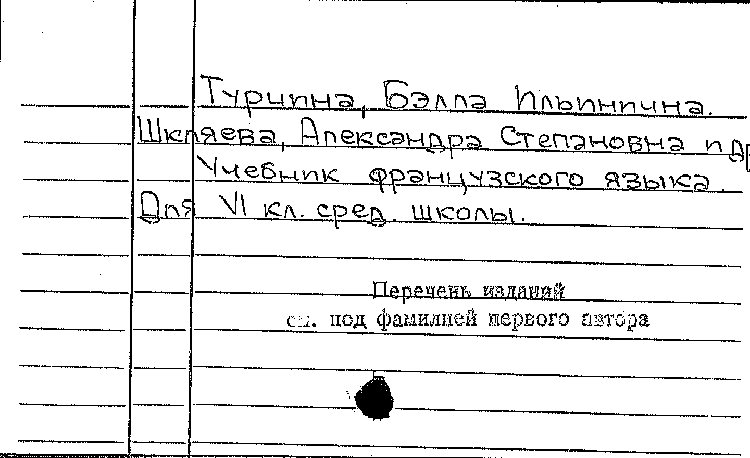 Турчина, Бэлла Ильинична.
Шкляева, Александра Степановна и др
Учебник французского языка.
Для VI кл. сред. школы.
Перечень изданий
см. под фамилией первого автора